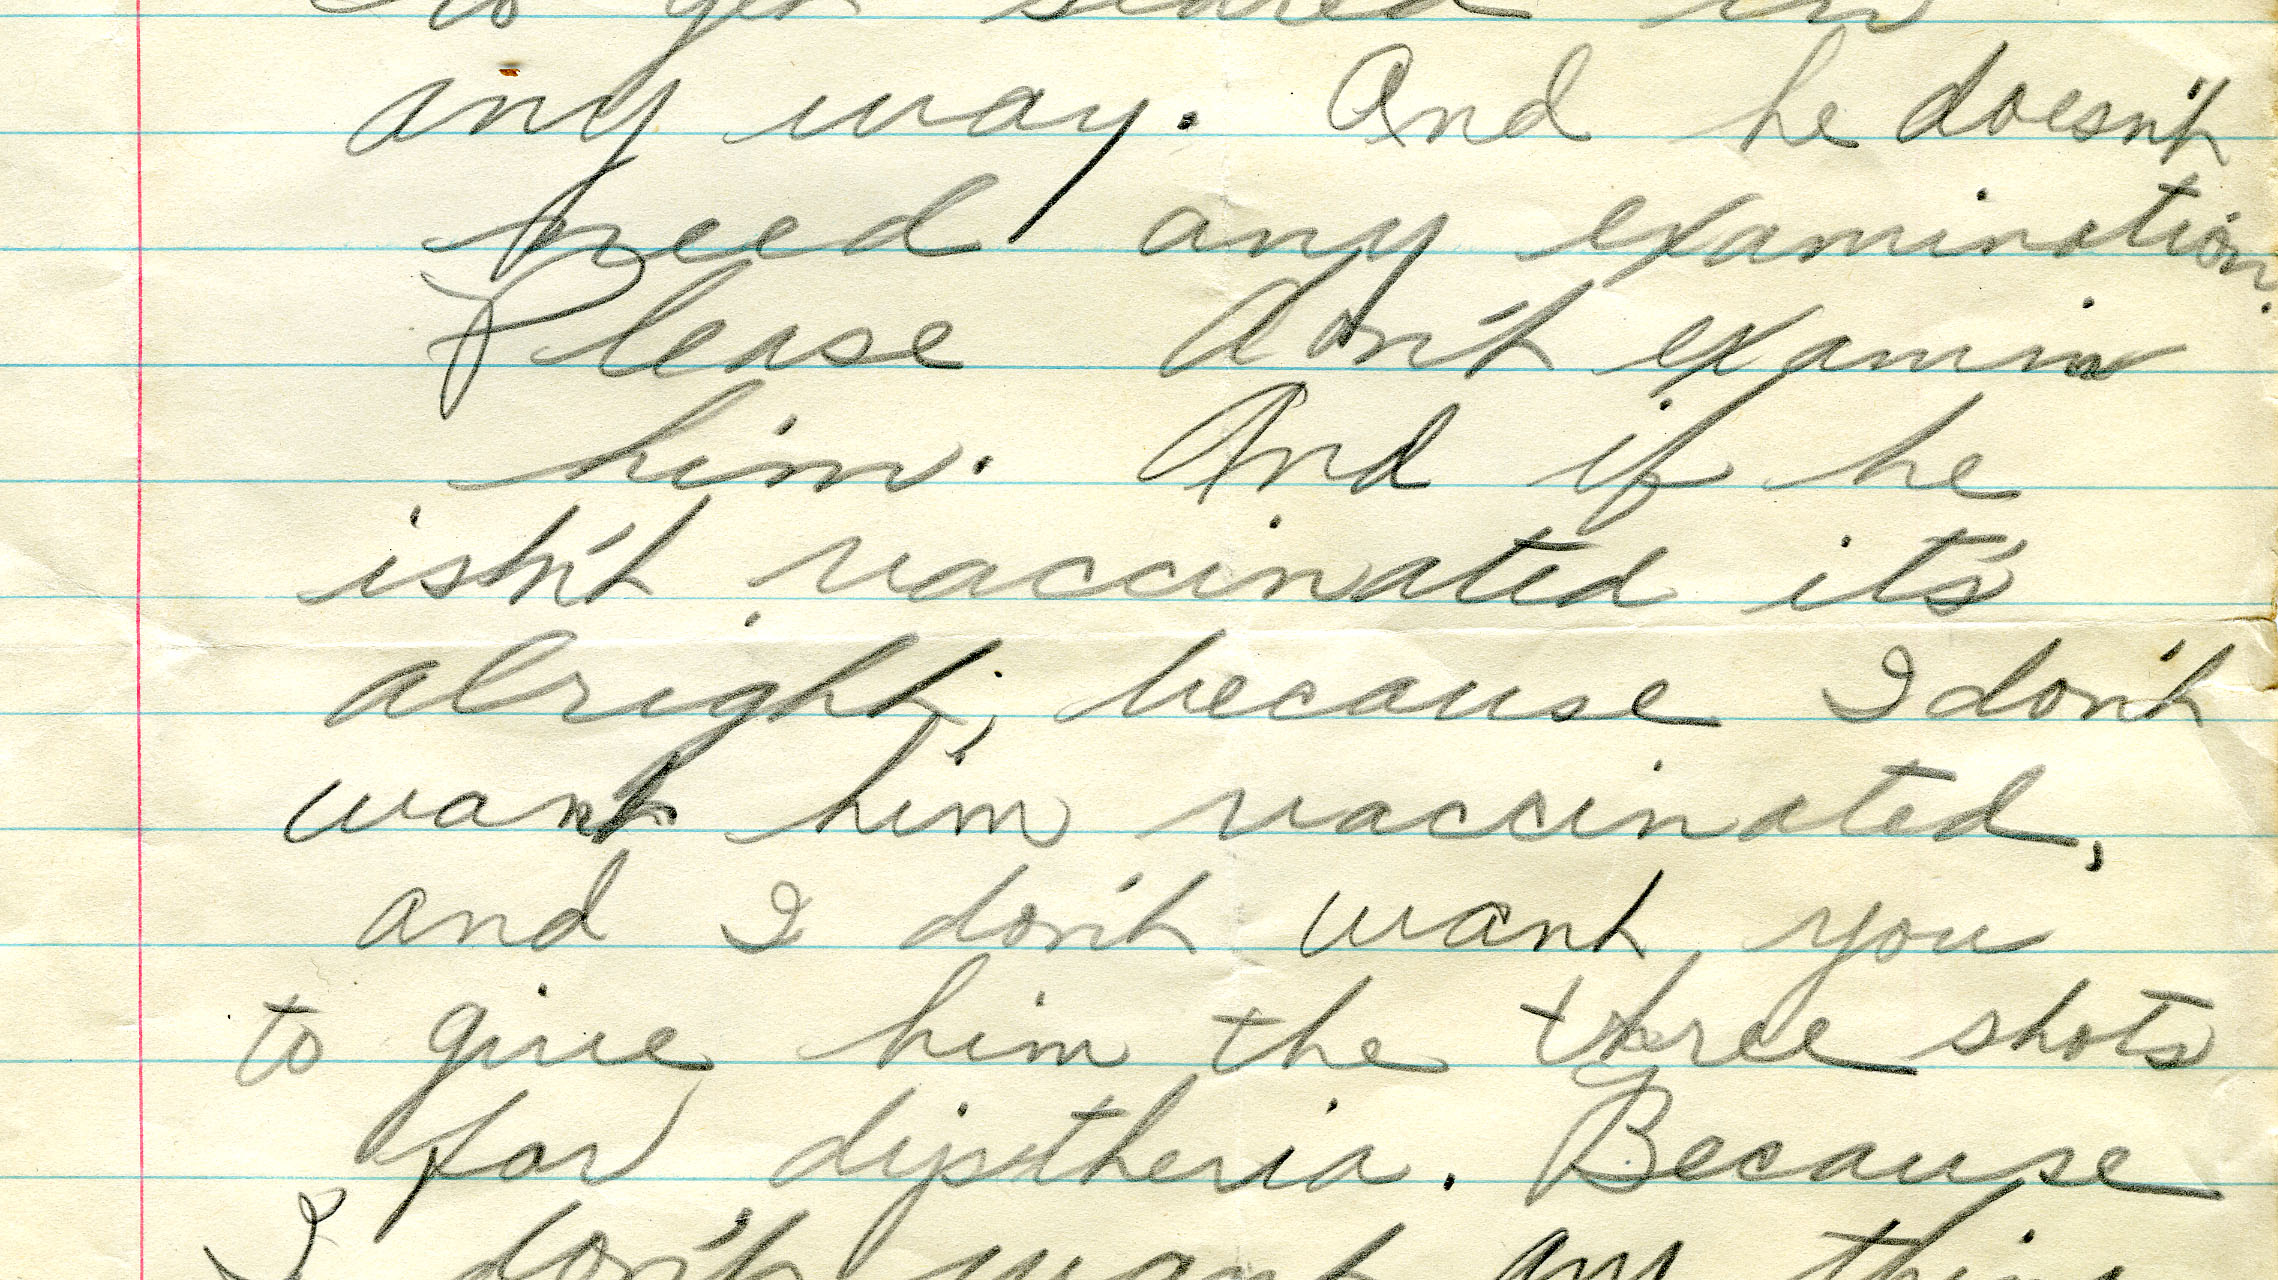 to get scared in
any way. And he doesn't
need any examination.
Please don't examin
him. And if he
isn't vaccinated it's
alright, because I don't
want him vaccinated,
and I don't want you
to give him the three shots
for diptheria. Because
I don't want any thing